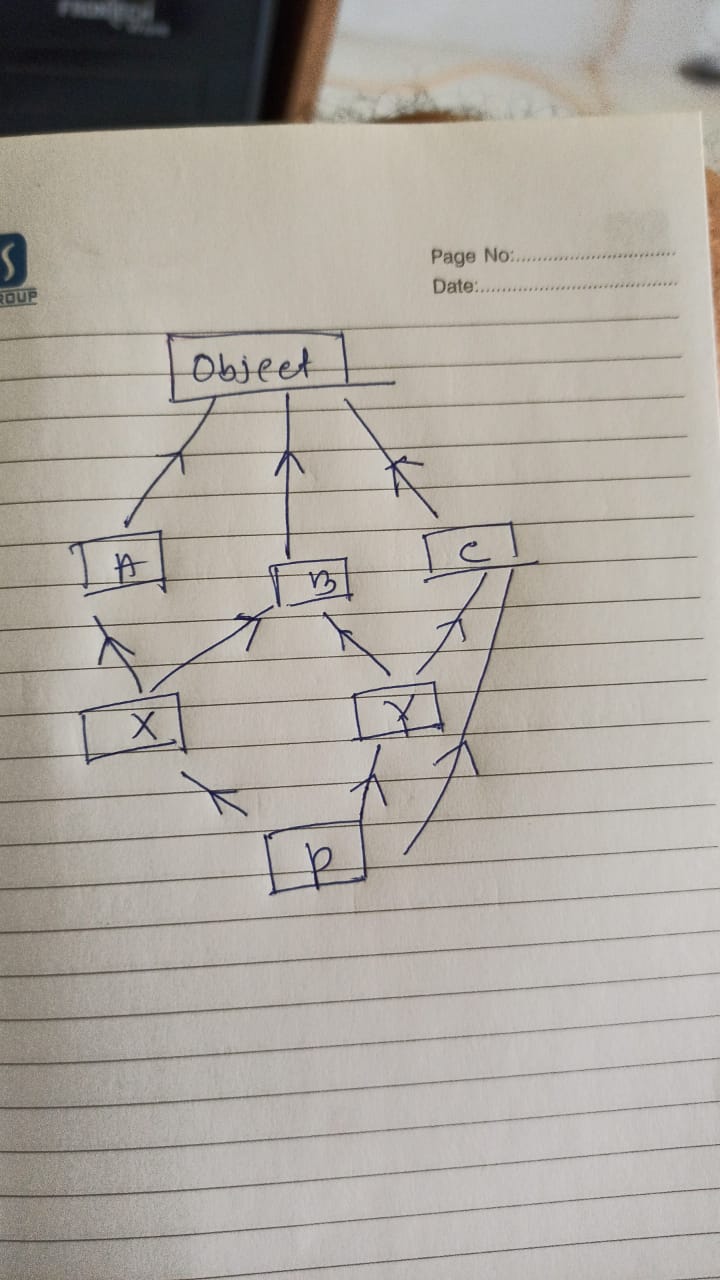 S
ROUP
Page No:
Date:
Object
A
B
C
X
Y
P